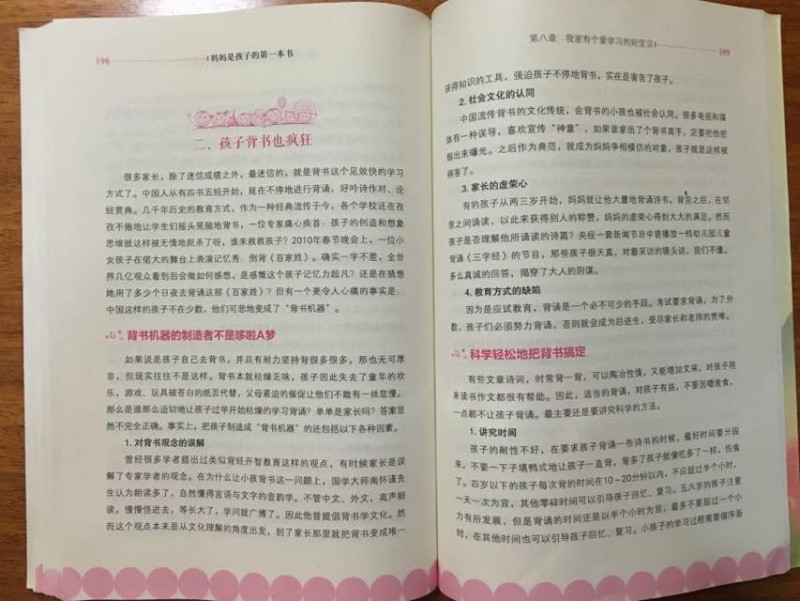 198
妈妈是孩子的第一本书
二、孩子背书也疯狂
很多家长，除了迷信成绩之外，最迷信的，就是背书这个见效快的学习
方式了。中国人从有四书五经开始，就在不停地进行背诵，好吟诗作对、论
经赏典。几千年历史的教育方式，作为一种经典流传于今，各个学校还在孜
孜不倦地让学生们摇头晃脑地背书，一位专家痛心疾首：孩子的创造和想象
思维就这样被无情地扼杀了呀，谁来救救孩子？2010年春节晚会上，一位小
女孩子在偌大的舞台上表演记忆秀：倒背《百家姓》。确实一字不差，全世
界几亿观众看到后会做如何感想。是感慨这个孩子记忆力超凡？还是在猜想
她用了多少个日夜去背诵这那《百家姓》？但有一个更令人心痛的事实是：
中国这样的孩子不在少数，他们可悲地变成了“背书机器”。
背书机器的制造者不是哆啦A梦
如果说是孩子自己去背书，并且有耐力坚持背很多很多，那也无可厚
非，但现实往往不是这样。背书本就枯燥乏味，孩子因此失去了童年的欢
乐，游戏、玩具被苍白的纸页代替，父母紧迫的催促让他们不敢有一丝怠慢。
那么是谁那么迫切地让孩子过早开始枯燥的学习背诵？单单是家长吗？答案显
然不完全正确。事实上，把孩子制造成“背书机器”的还包括以下各种因素。
1. 对背书观念的误解
曾经很多学者提出过类似背经开智教育这样的观点，有时候家长是误
解了专家学者的观念。在为什么让小孩背书这一问题上，国学大师南怀瑾先
生认为朗读多了，自然懂得言语与文字的音韵学。不管中文、外文，高声朗
读，慢慢悟进去，等长大了，学问就广博了。因此他曾提倡背书学文化。然
而这个观点本来是从文化理解的角度出发，到了家长那里就把背书变成唯一
第八章 我家有个爱学习的好宝贝
199
获得知识的工具，强迫孩子不停地背书，实在是害苦了孩子。
2. 社会文化的认同
中国流传背书的文化传统，会背书的小孩也被社会认同。很多电视和媒
体有一种误导，喜欢宣传“神童”，如果谁家出了个背书高手，定要把他挖
掘出来曝光。之后作为典范，就成为妈妈争相模仿的对象，孩子就是这样被
祸害了。
3. 家长的虚荣心
有的孩子从两三岁开始，妈妈就让他大量地背诵诗书，背完之后，在邻
里之间诵读，以此来获得别人的称赞，妈妈的虚荣心得到大大的满足。然而
孩子是否理解他所诵读的诗篇？央视一套新闻节目中曾播放一档幼儿园儿童
背诵《三字经》的节目，那些孩子很天真，对着采访的镜头说，我们不懂，
多么真诚的回答，揭穿了大人的阴谋。
4. 教育方式的缺陷
因为是应试教育，背诵是一个必不可少的手段。考试要求背诵，为了分
数，孩子们必须努力背诵，否则就会成为后进生，受尽家长和老师的责难。
科学轻松地把背书搞定
有些文章诗词，时常背一背，可以陶冶性情，又能增加文采，对孩子将
来读书作文都很有帮助。因此，适当的背诵，对孩子有益，不要因噎废食，
一点都不让孩子背诵。最主要还是要讲究科学的方法。
1. 讲究时间
孩子的耐性不好，在要求孩子背诵一些诗书的时候，最好时间要分段
来，不要一下子填鸭式地让孩子一直背，背多了孩子就像吃多了一样，伤食
了。四岁以下的孩子每次背的时间在10～20分钟以内，不应超过半个小时，
一天一次为宜，其他零碎时间可以引导孩子回忆、复习。五六岁的孩子注意
力有所发展，但是背诵的时间还是以半个小时为宜，最多不要超过一个小
时，在其他时间也可以引导孩子回忆、复习。小孩子的学习过程需要循序渐